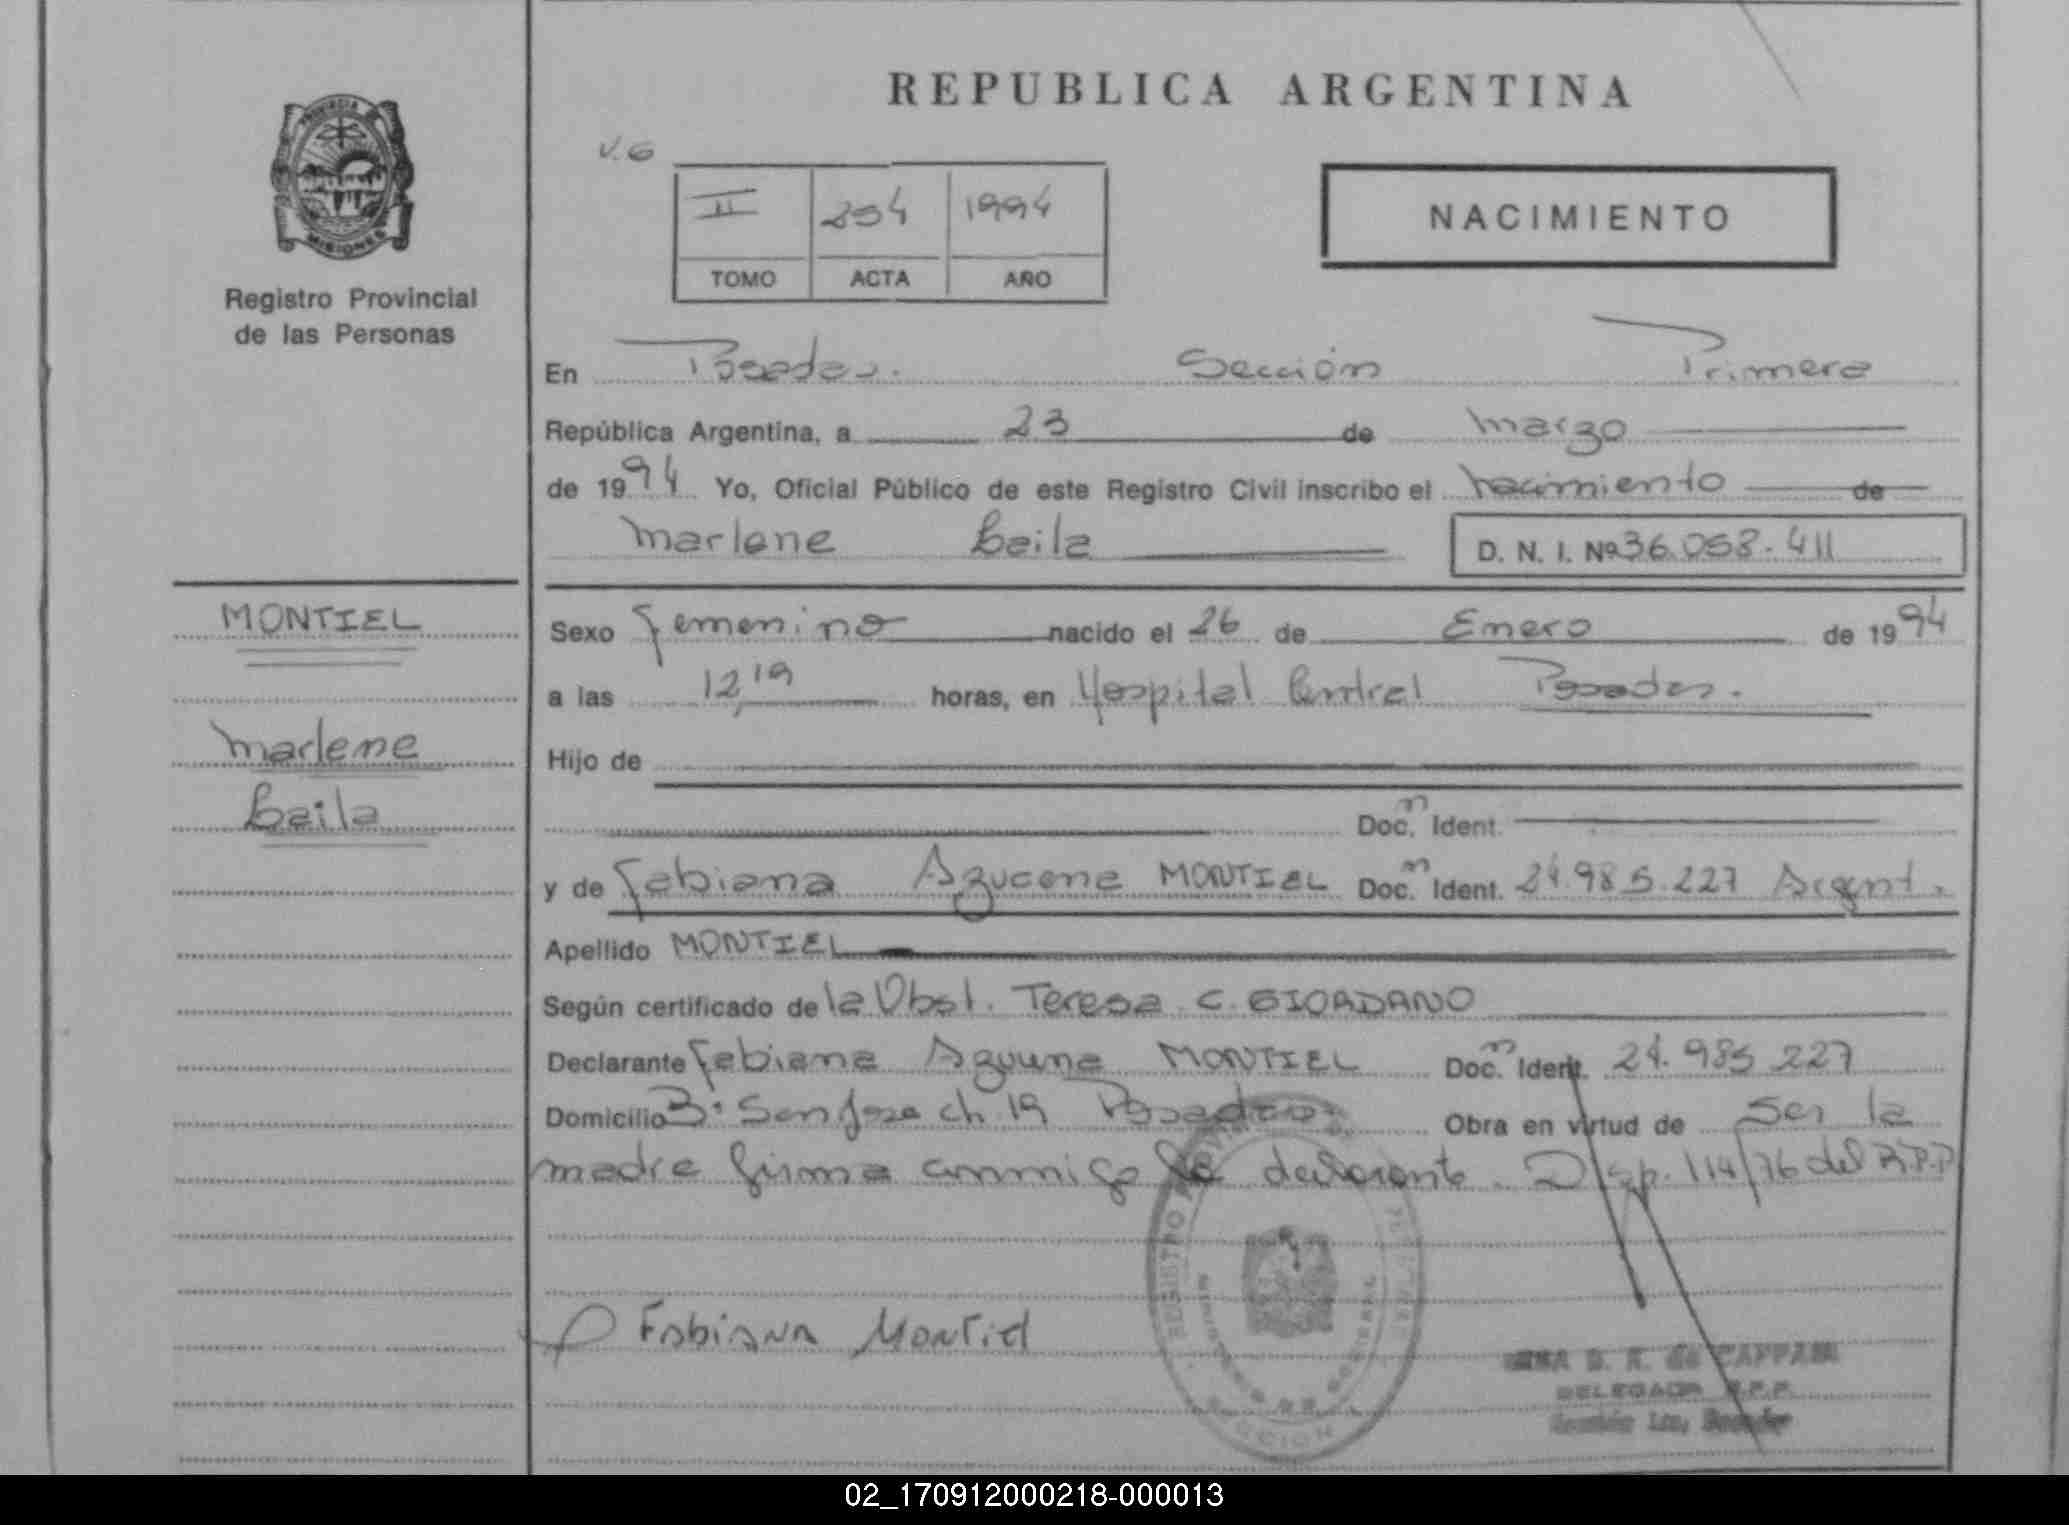 REPUBLICA ARGENTINA
PROVINCIA DE MISIONES
Registro Provincial
de las Personas
V.G
II 254 1994
TOMO ACTA AÑO
NACIMIENTO
En Posadas. Sección Primera
República Argentina, a 23 de marzo
de 1994 Yo, Oficial Público de este Registro Civil inscribo el nacimiento de
Marlene Leila D. N. I. Nº 36.058.411
MONTIEL
Marlene
Leila
Sexo femenino nacido el 26 de Enero de 1994
a las 12,19 horas, en Hospital Central Posadas.
Hijo de
Doc. n Ident.
y de Fabiana Azucena MONTIEL Doc. n Ident. 24.985.227 Argent.
Apellido MONTIEL
Según certificado de la Obst. Teresa C. GIORDANO
Declarante Fabiana Azucena MONTIEL Doc. n Ident. 24.985.227
Domicilio Bº San Jose ch 19 Posadas Obra en virtud de ser la
madre firma conmigo la declarante. Disp. 114/76 del R.P.P
Fabiana Montiel
REGISTRO
D. R. de
DELEGADA R.P.P.
02_170912000218-000013